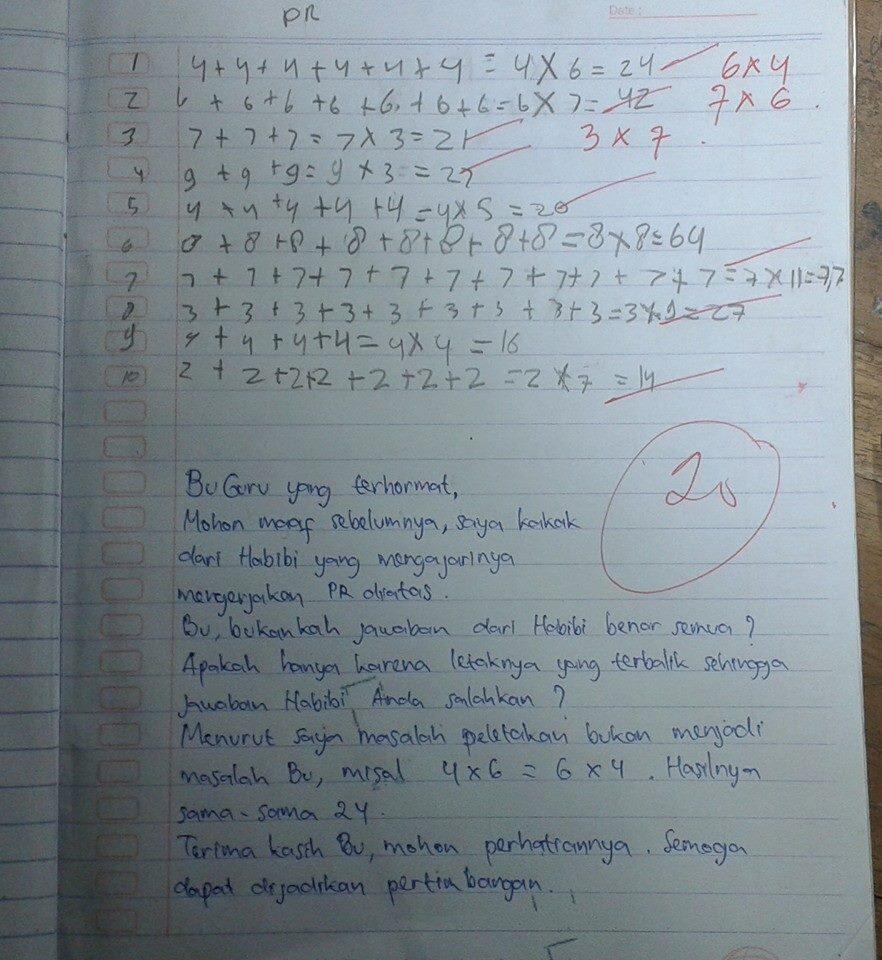 PR
Date :
1 4 + 4 + 4 + 4 + 4 + 4 = 4 X 6 = 24 6 x 4
2 6 + 6 + 6 + 6 + 6 + 6 + 6 = 6 X 7 = 42 7 x 6
3 7 + 7 + 7 = 7 x 3 = 21 3 x 7
4 9 + 9 + 9 = 9 x 3 = 27
5 4 + 4 + 4 + 4 + 4 = 4 x 5 = 20
6 8 + 8 + 8 + 8 + 8 + 8 + 8 + 8 = 8 x 8 = 64
7 7 + 7 + 7 + 7 + 7 + 7 + 7 + 7 + 7 + 7 + 7 = 7 x 11 = 77
8 3 + 3 + 3 + 3 + 3 + 3 + 3 + 3 + 3 = 3 x 9 = 27
9 4 + 4 + 4 + 4 = 4 x 4 = 16
10 2 + 2 + 2 + 2 + 2 + 2 + 2 = 2 x 7 = 14
20
Bu Guru yang terhormat,
Mohon maaf sebelumnya, saya kakak
dari Habibi yang mengajarinya
mengerjakan PR diatas.
Bu, bukankah jawaban dari Habibi benar semua ?
Apakah hanya karena letaknya yang terbalik sehingga
jawaban Habibi Anda salahkan ?
Menurut saya masalah peletakan bukan menjadi
masalah Bu, misal 4 x 6 = 6 x 4 . Hasilnya
sama-sama 24.
Terima kasih Bu, mohon perhatiannya. Semoga
dapat dijadikan pertimbangan.